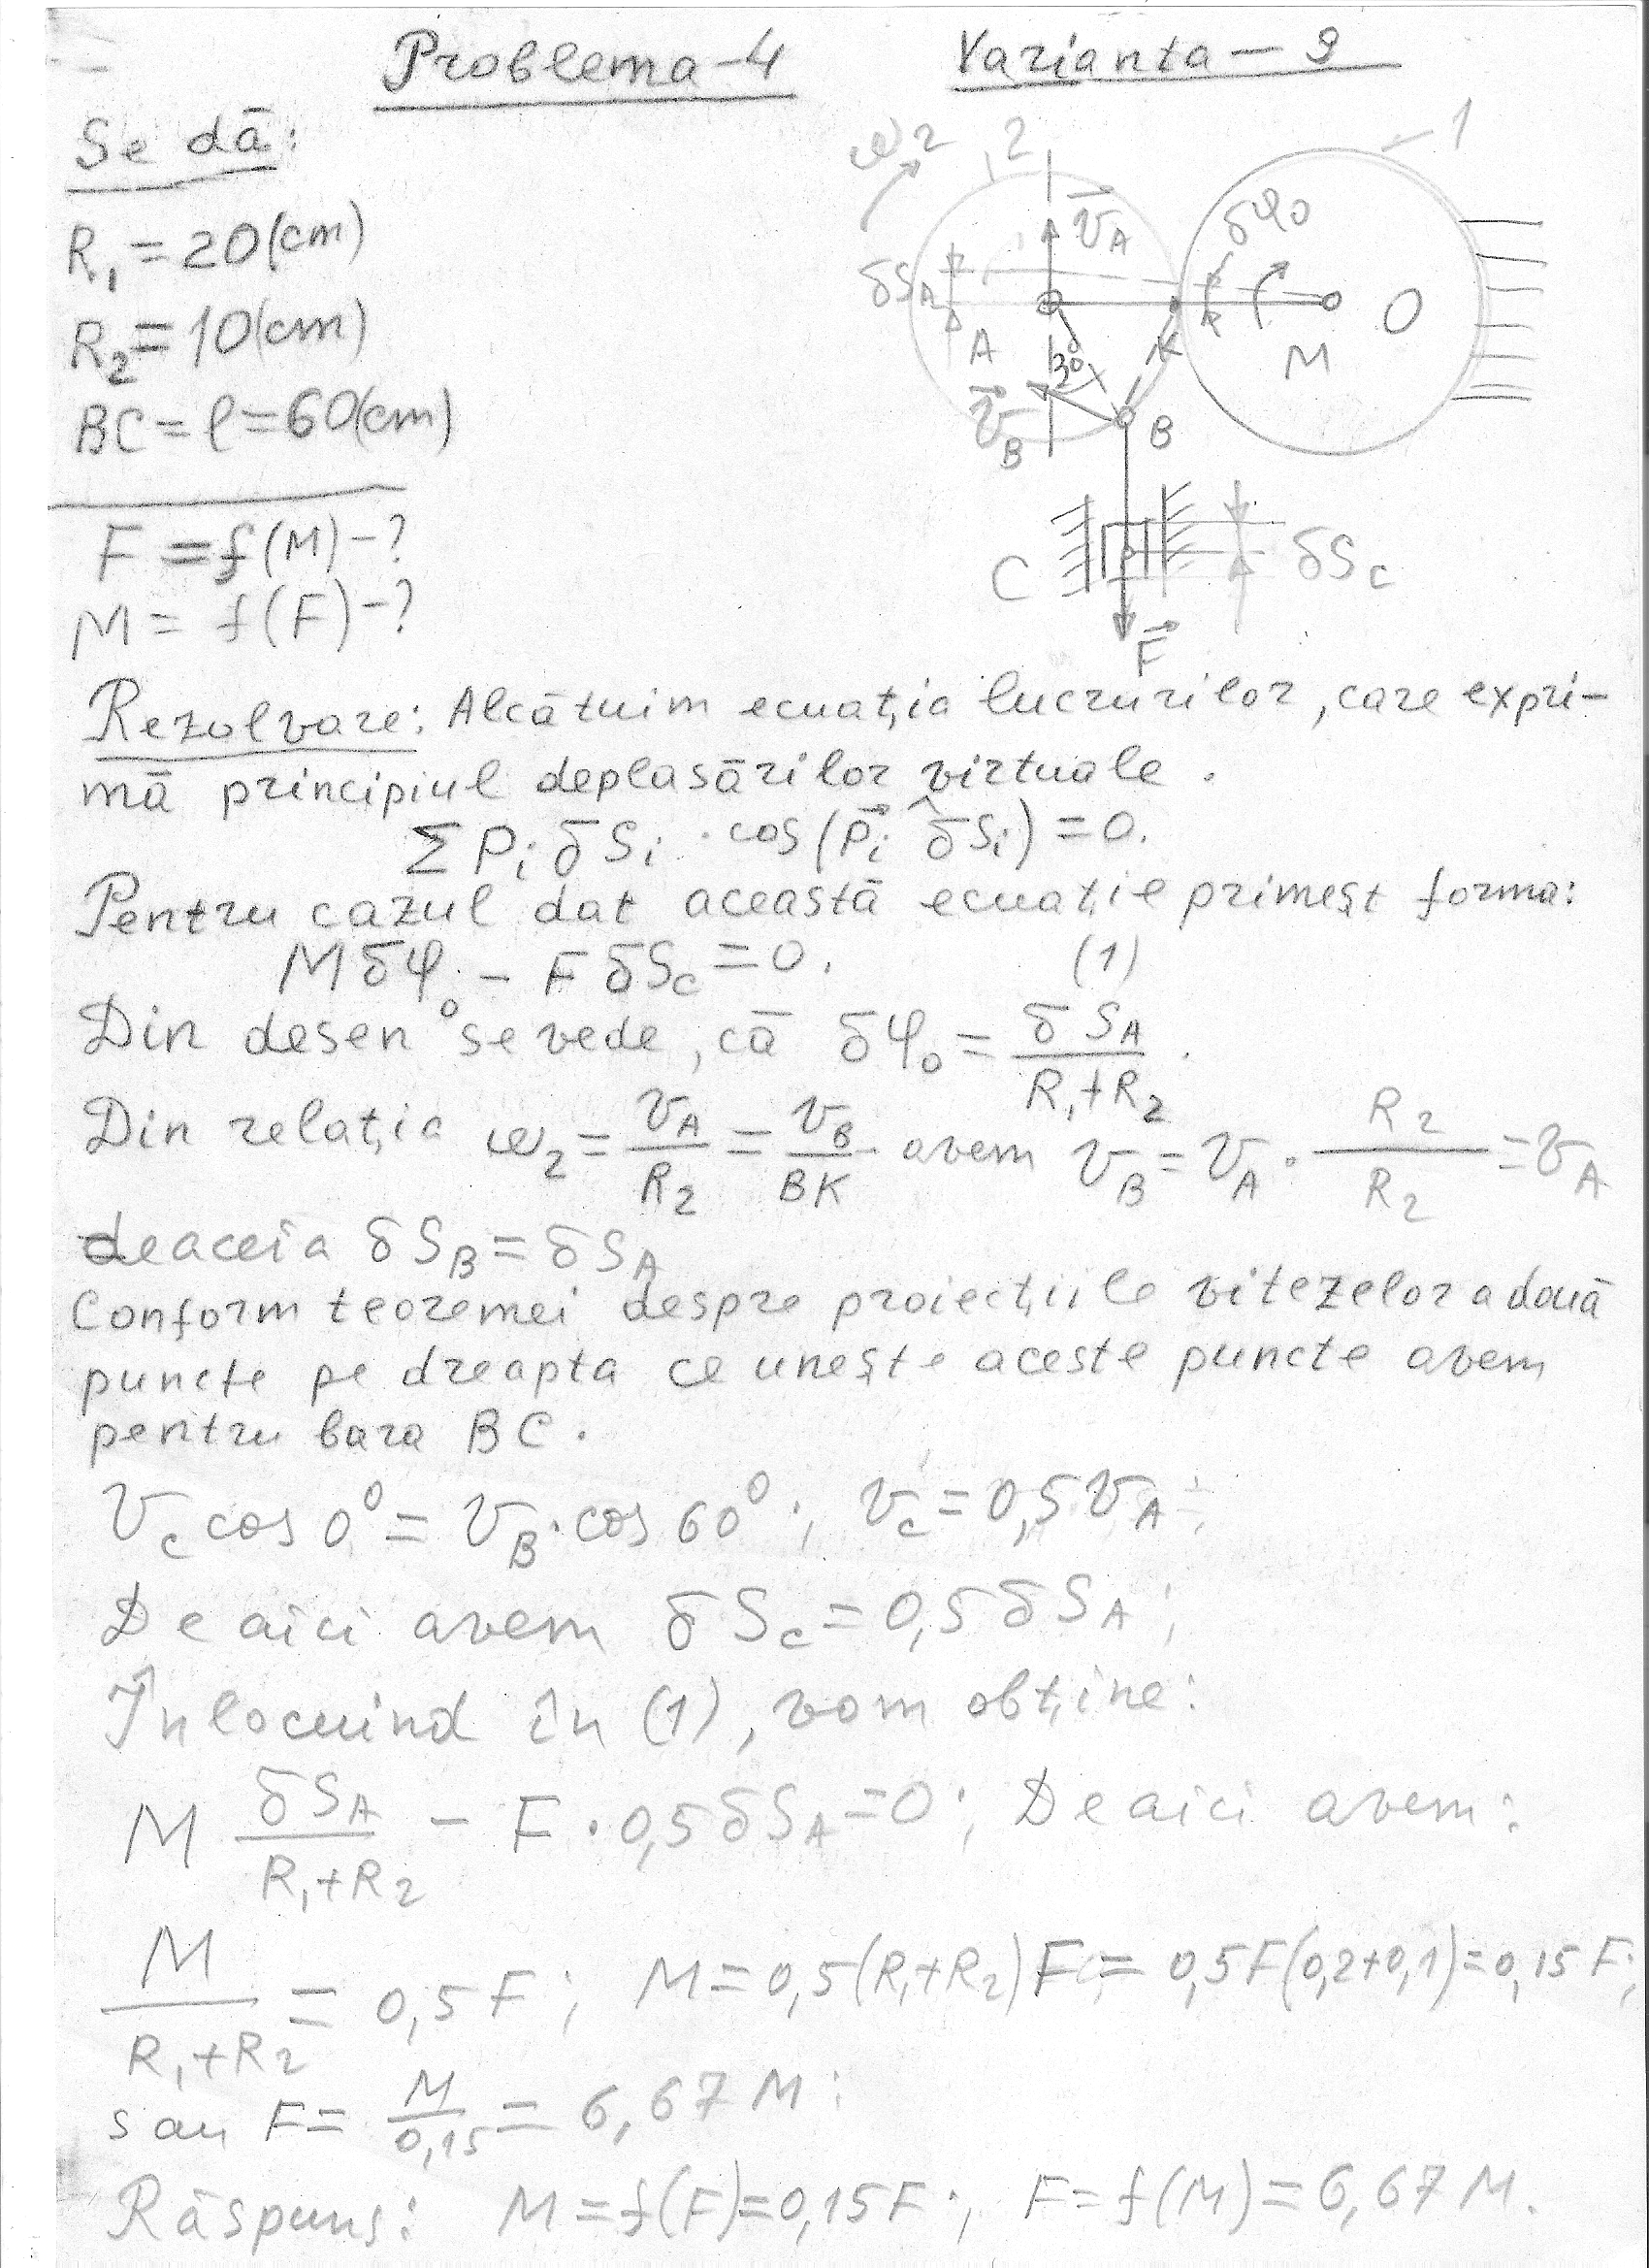 Problema-4 Varianta-9
Se dă:
R₁=20(cm)
R₂=10(cm)
BC=ℓ=60(cm)
F=f(M)-?
M=f(F)-?
ω₂
2
1
v⃗_A
δφ₀
δS_A
A
30°
K
M
O
v⃗_B
B
C
δS_c
F⃗
Rezolvare: Alcătuim ecuația lucrurilor, care expri-
mă principiul deplasărilor virtuale.
ΣPᵢδSᵢ·cos(P⃗ᵢ^δSᵢ)=0.
Pentru cazul dat această ecuație primeșt forma:
Mδφ₀-FδS_c=0. (1)
Din desen se vede, că δφ₀=δS_A/(R₁+R₂).
Din relația ω₂=v_A/R₂=v_B/BK avem v_B=v_A·R₂/R₂=v_A
deaceia δS_B=δS_A
Conform teoremei despre proiecțiile vitezelor a două
puncte pe dreapta ce unește aceste puncte avem
pentru bara BC.
v_c cos0°=v_B·cos60°; v_c=0,5v_A;
De aici avem δS_c=0,5δS_A;
Înlocuind în (1), vom obține:
M δS_A/(R₁+R₂) - F·0,5δS_A=0; De aici avem:
M/(R₁+R₂)=0,5F; M=0,5(R₁+R₂)F=0,5F(0,2+0,1)=0,15F;
sau F=M/0,15=6,67M;
Răspuns: M=f(F)=0,15F; F=f(M)=6,67M.